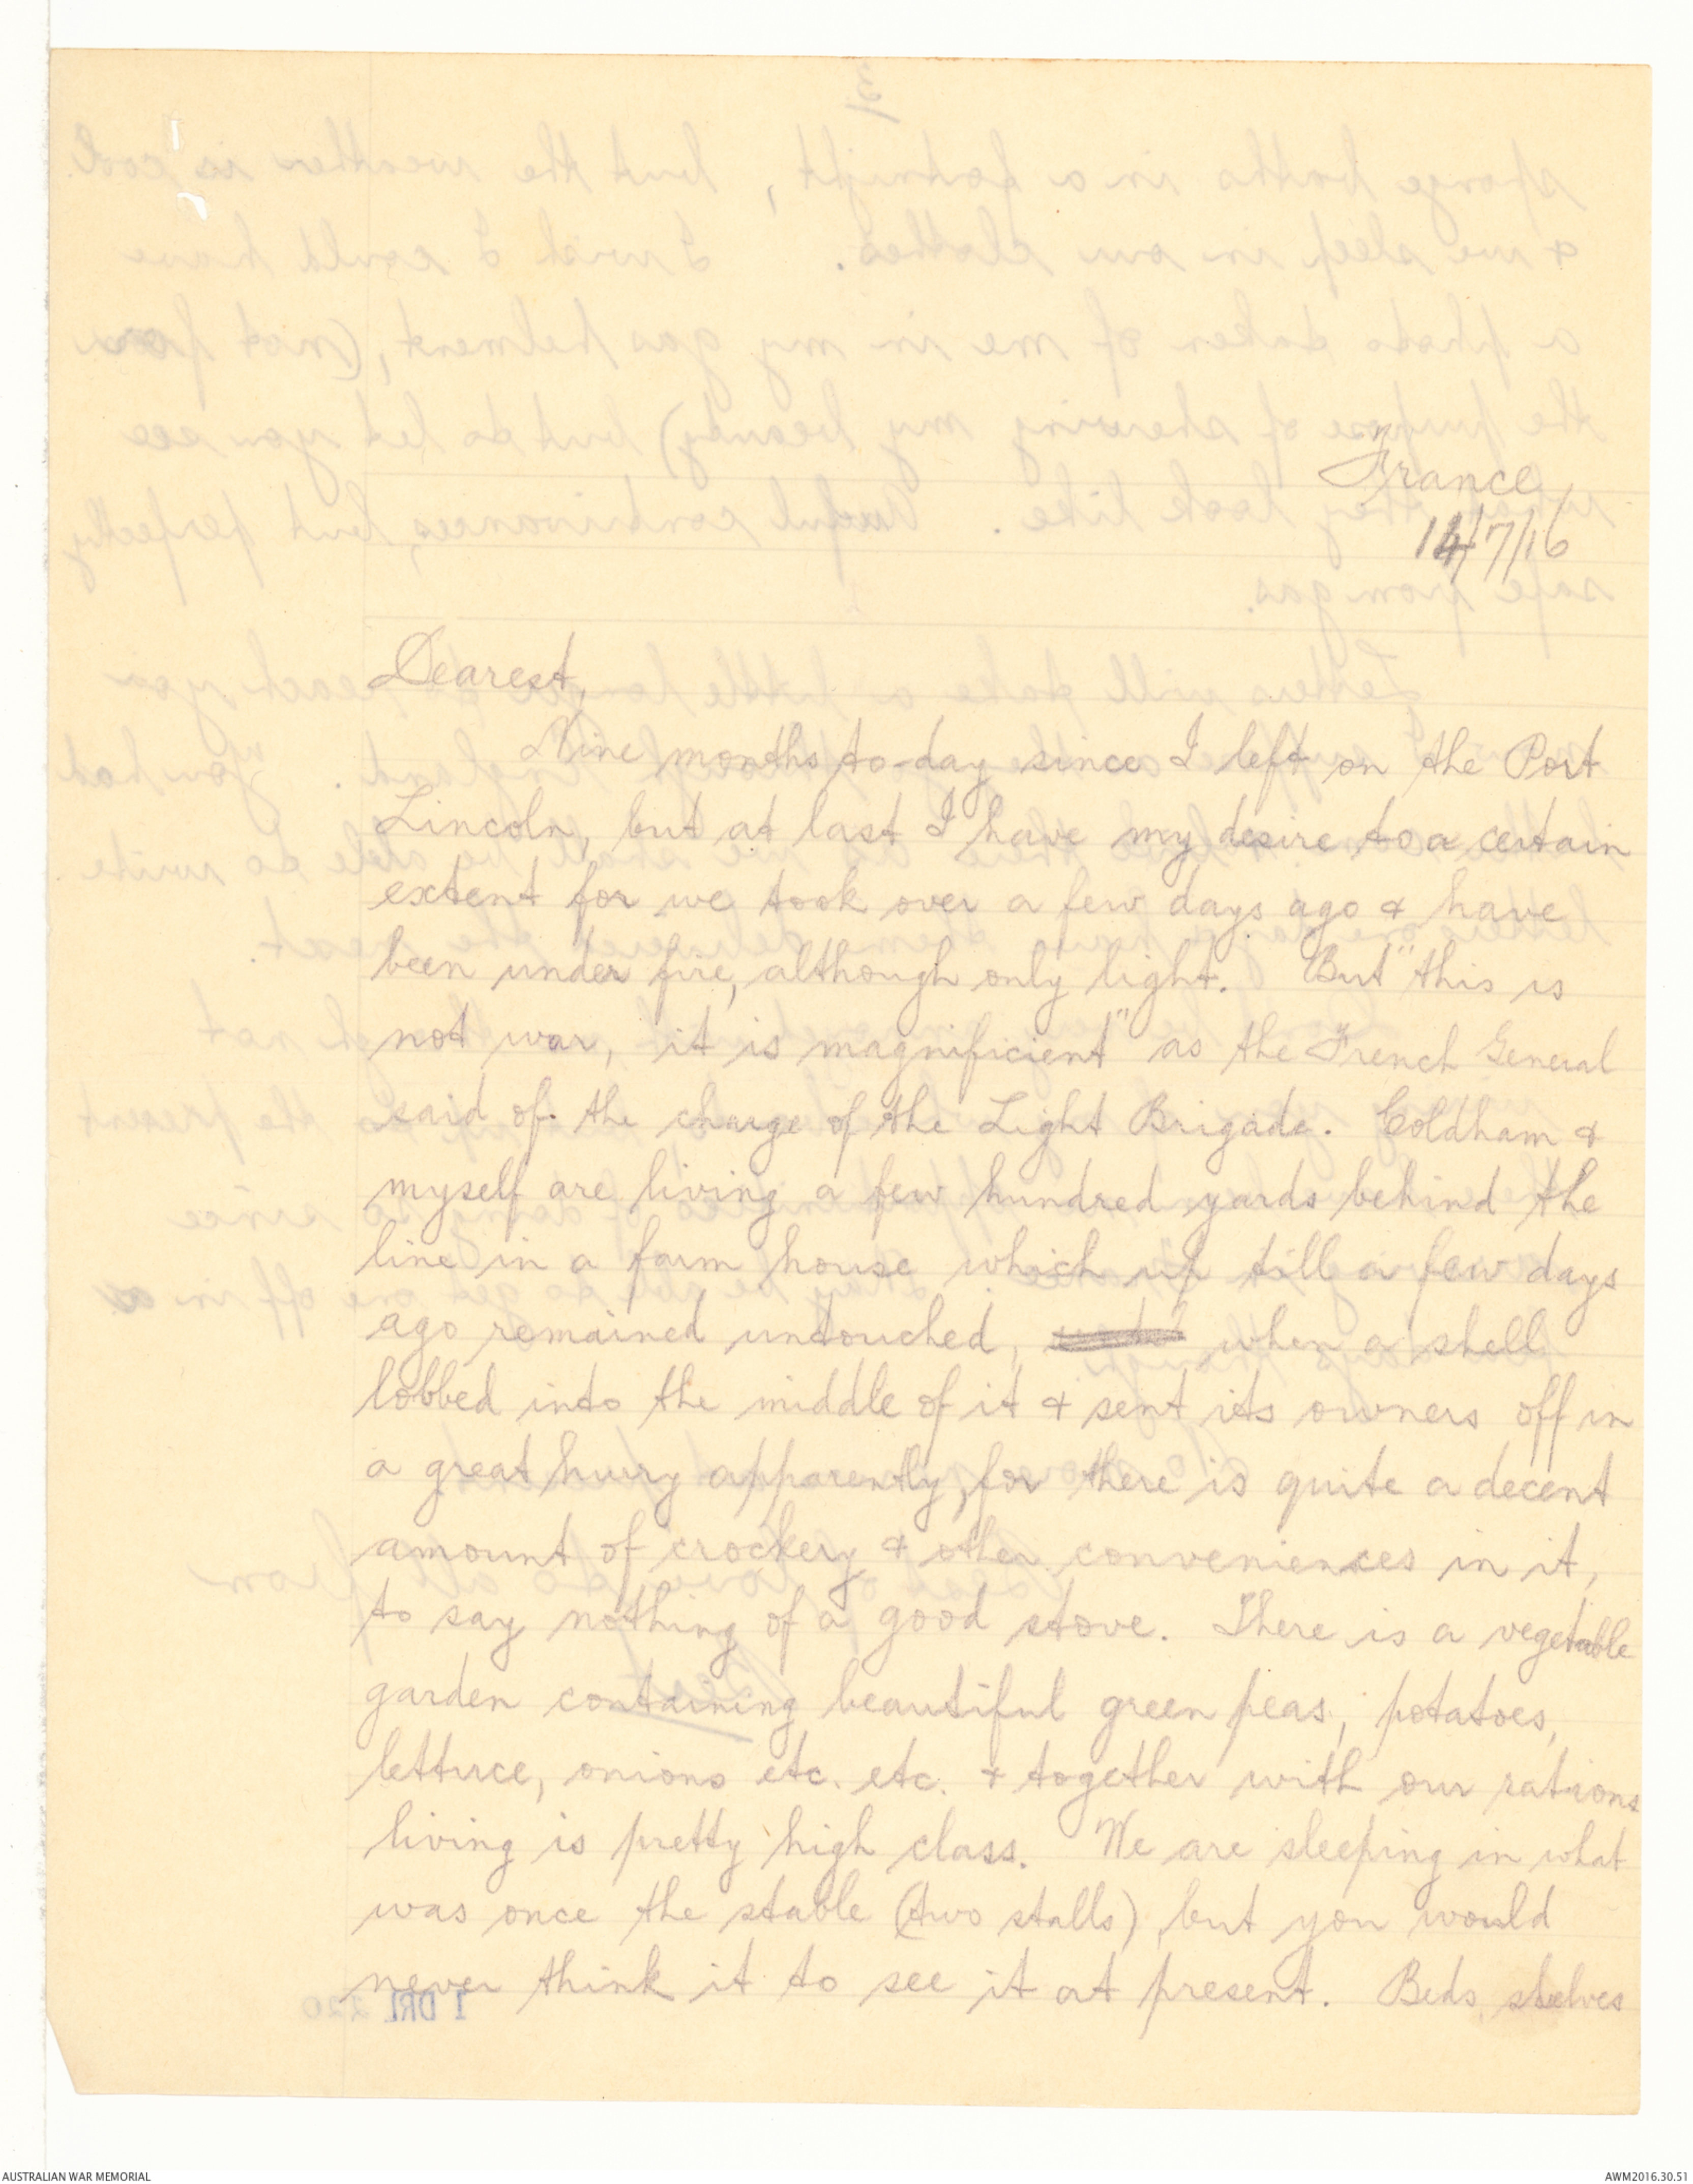 France
14/7/16
Dearest,
Nine months to-day since I left on the Port
Lincoln, but at last I have my desire to a certain
extent for we took over a few days ago & have
been under fire, although only light. But "this is
not war, it is magnificient" as the French General
said of the charge of the Light Brigade. Coldham &
myself are living a few hundred yards behind the
line in a farm house which up till a few days
ago remained untouched, when a shell
lobbed into the middle of it & sent its owners off in
a great hurry apparently, for there is quite a decent
amount of crockery & other conveniences in it,
to say nothing of a good stove. There is a vegetable
garden containing beautiful green peas, potatoes,
lettuce, onions etc. etc. & together with our rations
living is pretty high class. We are sleeping in what
was once the stable (two stalls), but you would
never think it to see it at present. Beds, shelves
1 DRL 220
AUSTRALIAN WAR MEMORIAL
AWM2016.30.51